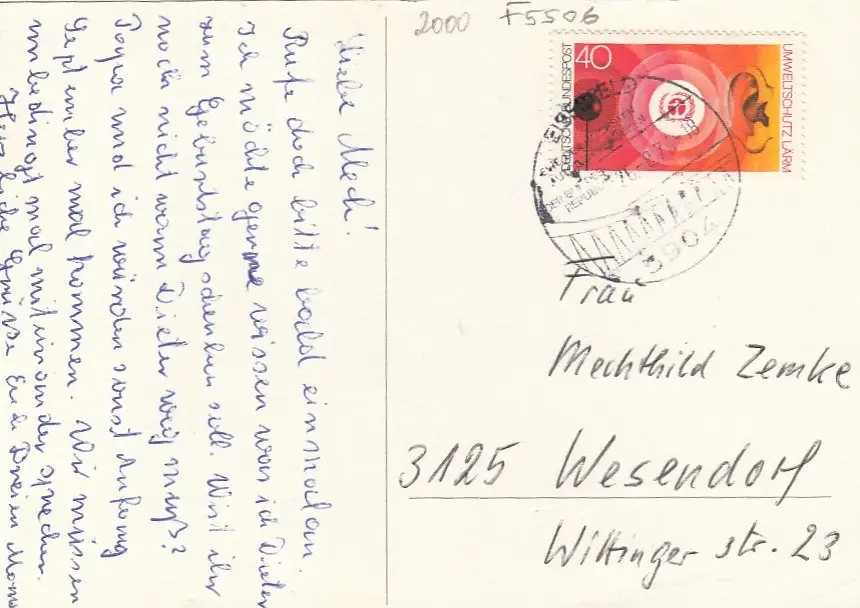 Liebe Mech!
Rufe doch bitte bald einmal an.
Ich möchte gerne wissen was ich Dieter
zum Geburtstag schenken soll. Wißt ihr
noch nicht wann Dieter weg muß?
Papa und ich würden sonst Anfang
September mal kommen. Wir müssen
unbedingt mal miteinander sprechen.
Herzliche Grüsse Euch Dreien Mama
2000 F5506
40
DEUTSCHE BUNDESPOST
UMWELTSCHUTZ LÄRM
3904
Frau
Mechthild Zemke
3125 Wesendorf
Wittinger str. 23